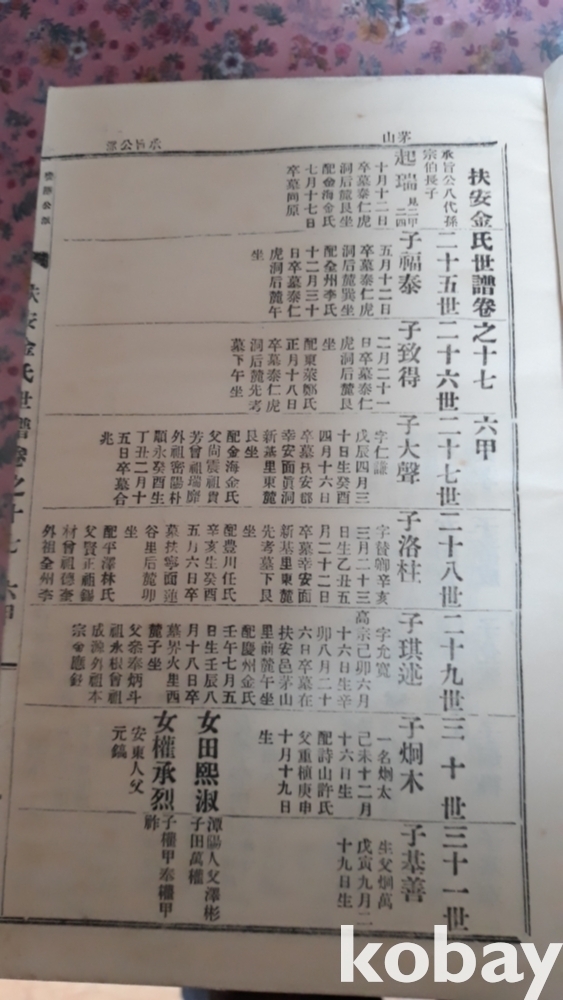 扶安金氏世譜卷之十七 六甲
二十五世
二十六世
二十七世
二十八世
二十九世
三十世
三十一世
茅山
承旨公派
承旨公八代孫
宗伯長子
起瑞
十月十二日
卒墓泰仁虎
洞后麓艮坐
配金海金氏
七月十七日
卒墓同原
子福泰
五月十二日
卒墓泰仁虎
洞后麓巽坐
配全州李氏
十二月三十
日卒墓泰仁
虎洞后麓午
坐
子致得
二月二十一
日卒墓泰仁
虎洞后麓艮
坐
配東萊鄭氏
正月十八日
卒墓泰仁虎
洞后麓先考
墓下午坐
子大聲
字仁謙
戊辰四月三
十日生癸酉
四月十六日
卒墓扶安郡
幸安面眞洞
新基里東麓
艮坐
配金海金氏
父尚震祖貴
芳曾祖瑞廨
外祖密陽朴
順永癸酉生
丁丑二月十
五日卒墓合
兆
子洛柱
字贊卿辛亥
三月二十三
日生乙丑五
月二十二日
卒墓幸安面
新基里東麓
先考墓下艮
坐
配豊川任氏
辛亥生癸酉
五月六日卒
墓扶寧面蓮
谷里后麓卯
坐
配平澤林氏
父賢正祖錫
材曾祖德奎
外祖全州李
子琪述
字允寬
高宗己卯六月
十六日生辛
卯八月二十
六日卒墓在
扶安邑茅山
里前麓午坐
配慶州金氏
壬午七月五
日生壬辰八
月十八日卒
墓界火里西
麓子坐
父參奉炳斗
祖永根曾祖
成源外祖本
子炯木
一名炯太
己未十二月
十六日生
配詩山許氏
父重植庚申
十月十九日
生
女田熙淑
潭陽人父澤彬
子田萬權
女權承烈
安東人父
元鎬
子權甲奉權甲
祚
子基善
生父炯萬
戊寅九月二
十九日生
扶安金氏世譜卷之十七 六甲
kobay